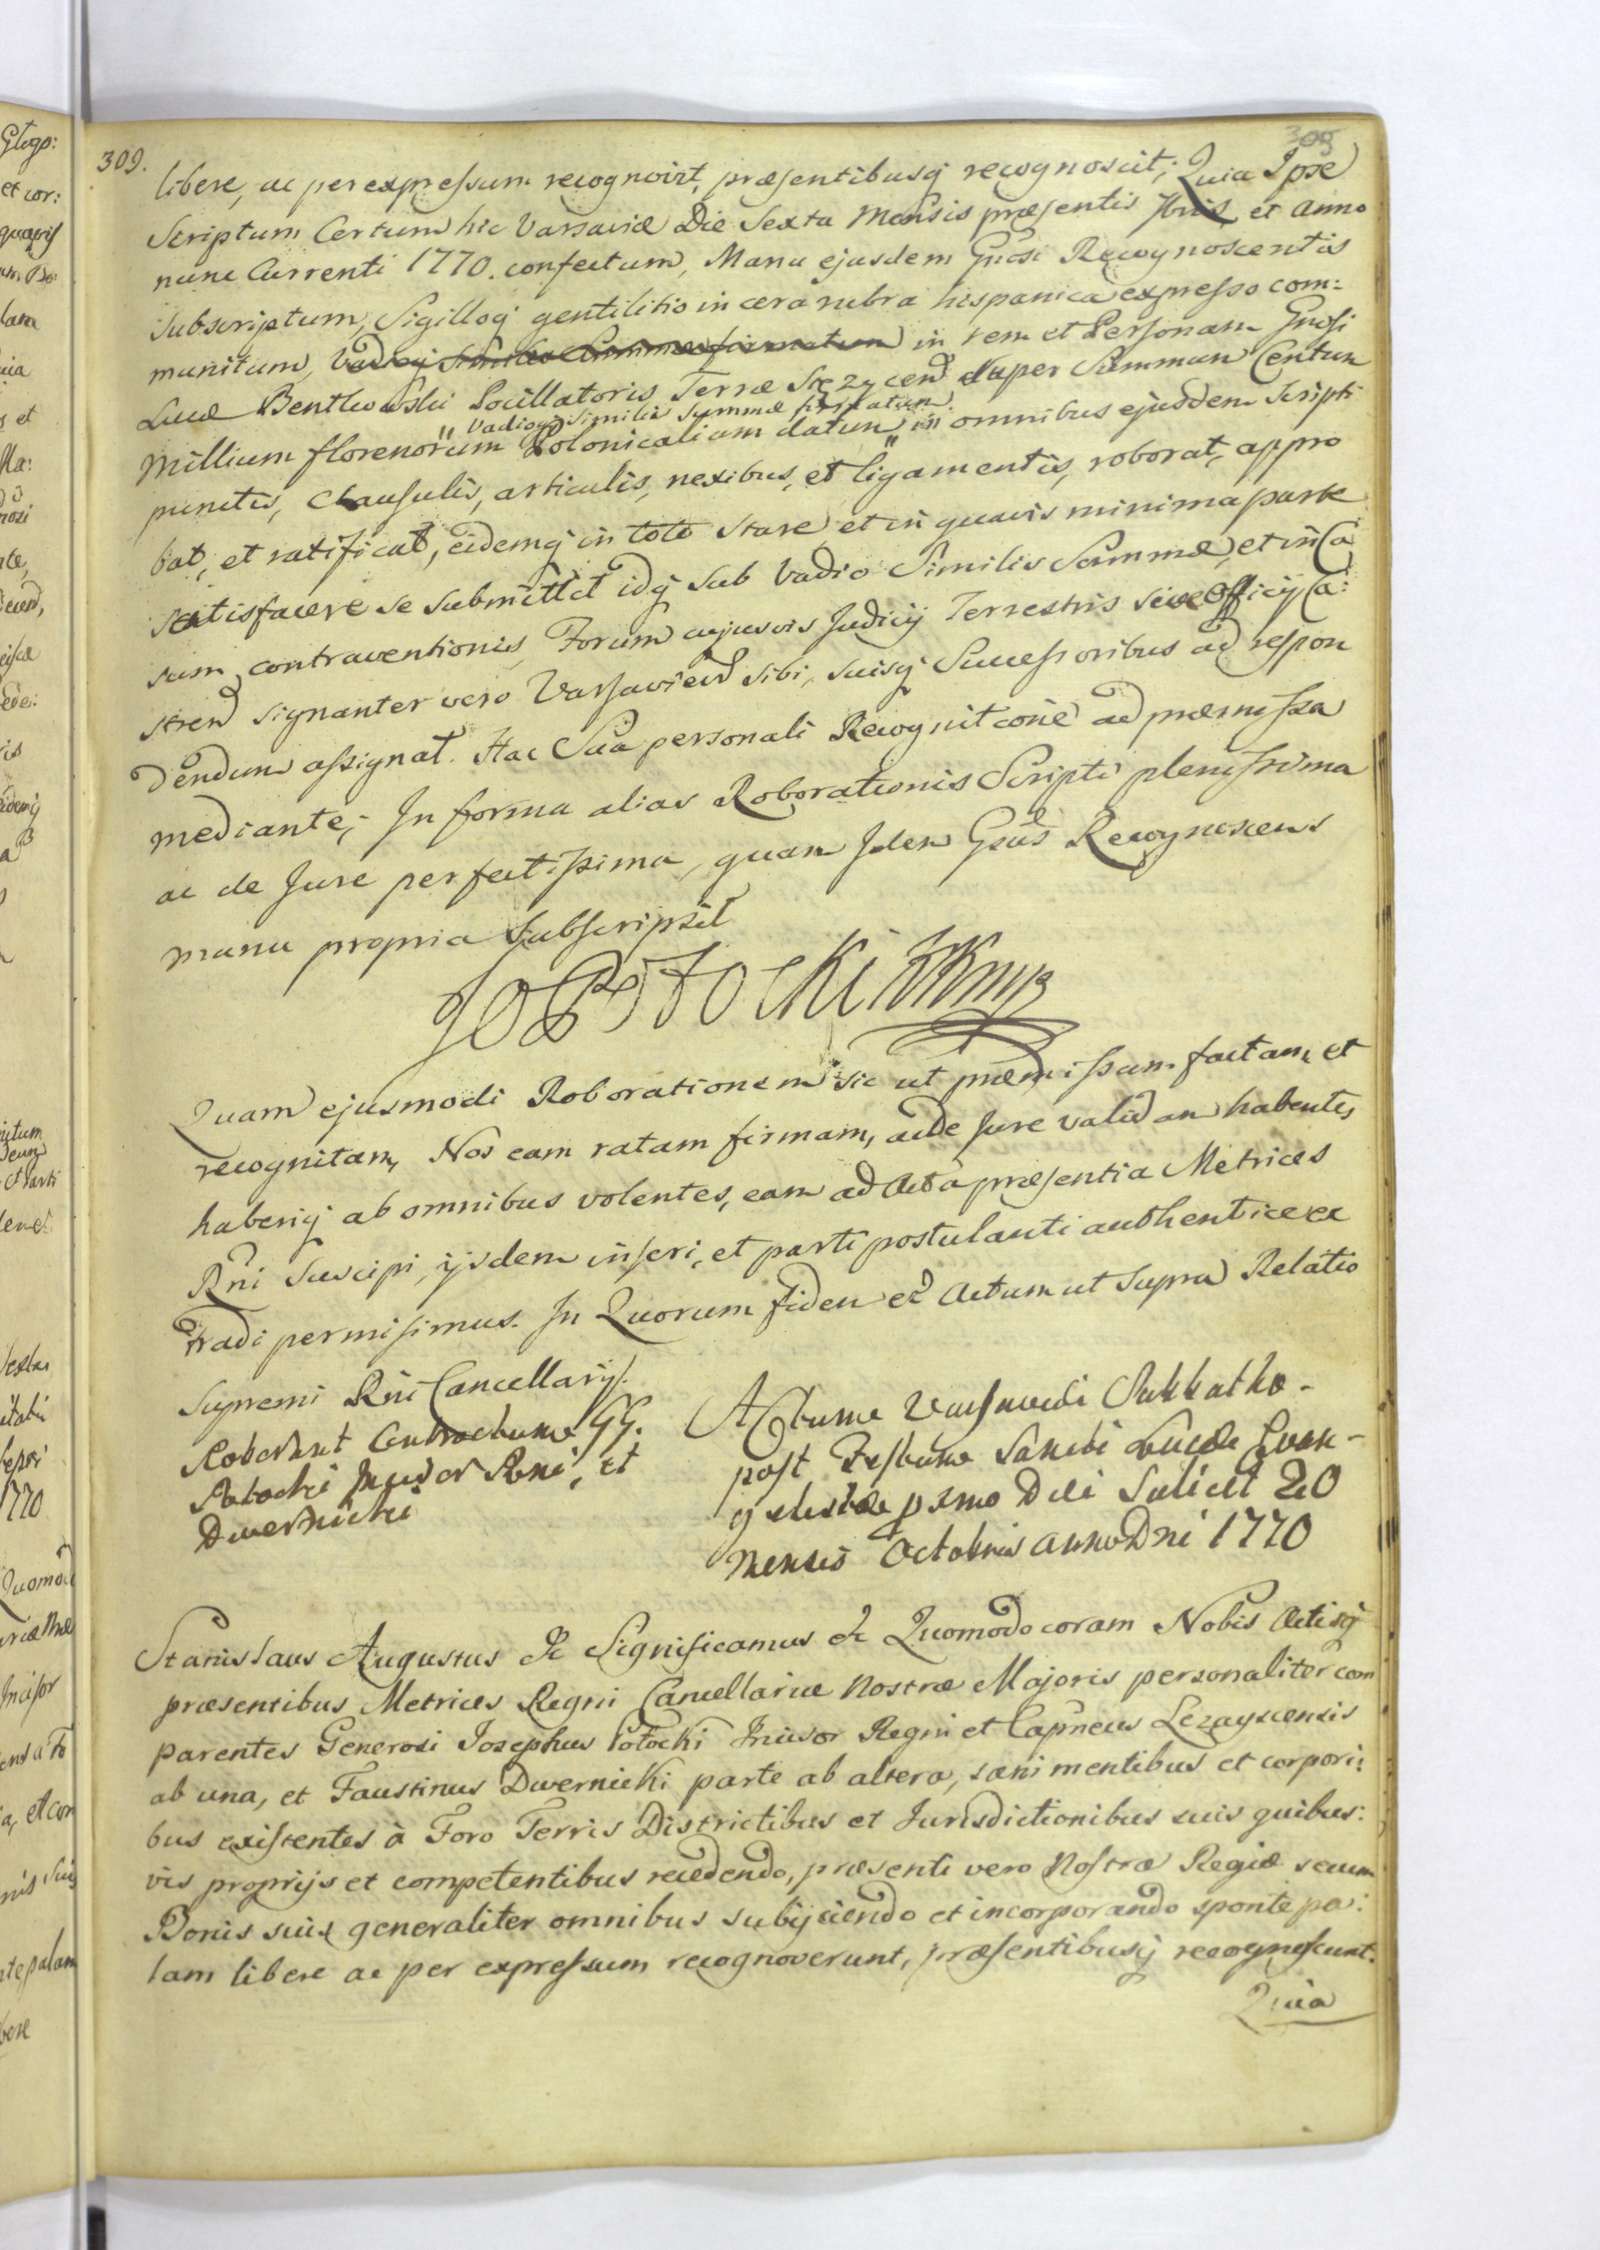 309.
305
libere, ac per expressum recognovit, præsentibusq recognoscit; Quia Ipse
Scriptum Certum hic Varsaviæ Die Sexta Mensis præsentis Xbris et Anno
nunc Currenti 1770. confectum, Manu ejusdem Gnosi Recognoscentis
subscriptum, Sigilloq gentilitio in cera rubra hispanica expresso com:
munitum, in rem et Personam Gnosi
Lucæ Bentkowski Pocillatoris Terræ Stęzycen super Summam Centum
Vadioq Similis Summæ firmatum
Millium florenorum Polonicalium datum " in omnibus ejusdem Scripti
punctis, Clausulis, articulis, nexibus, et ligamentis, roborat, appro
bat, et ratificat, eidemq in toto stare, et in quavis minima parte
satisfacere se submittit idq sub Vadio Similis Summæ, et in Ca
sum contraventionis, Forum cujusvis Judicij Terrestris sive Officij Ca:
stren signanter vero Varsavien sibi, suisq Successoribus ad respon
dendum assignat. Hac Sua personali Recognitcone ad præmissa
mediante; In forma alias Roborationis Scripti plenissima
ac de Jure perfectissima, quam Idem Gsus Recognoscens
manu propria subscripsit
Quam ejusmodi Roborationem sic ut præmissum factam, et
recognitam, Nos eam ratam firmam, acde Jure validam habentes
haberiq ab omnibus volentes, eam ad Acta præsentia Metrices
Rni Suscipi, ijsdem inseri, et parti postulanti authentice ex
tradi permisimus. In Quorum fidem et Actum ut Supra Relatio
Supremi Rni Cancellarij.
Roborant Contractum GG.
Potocki Incisor Rni, et
Dwernicki
Actum Varsaviæ Sabbatho
post Festum Sancti Lucæ Evan-
gelistæ pxmo Die Scilicet 20
Mensis Octobris Anno Dni 1770
Stanislaus Augustus & Significamus & Quomodo coram Nobis Actisq
præsentibus Metrices Regni Cancellariæ Nostræ Majoris personaliter com
parentes Generosi Josephus Potocki Incisor Regni et Capneus Lezayscensis
ab una, et Faustinus Dwernicki parte ab altera, sani mentibus et corpori:
bus existentes à Foro Terris Districtibus et Jurisdictionibus suis quibus:
vis proprijs et competentibus recedendo, præsenti vero Nostræ Regiæ secum
Bonis suis generaliter omnibus subijciendo et incorporando sponte pa:
lam libere ac per expressum recognoverunt, præsentibusq recognoscunt.
Quia